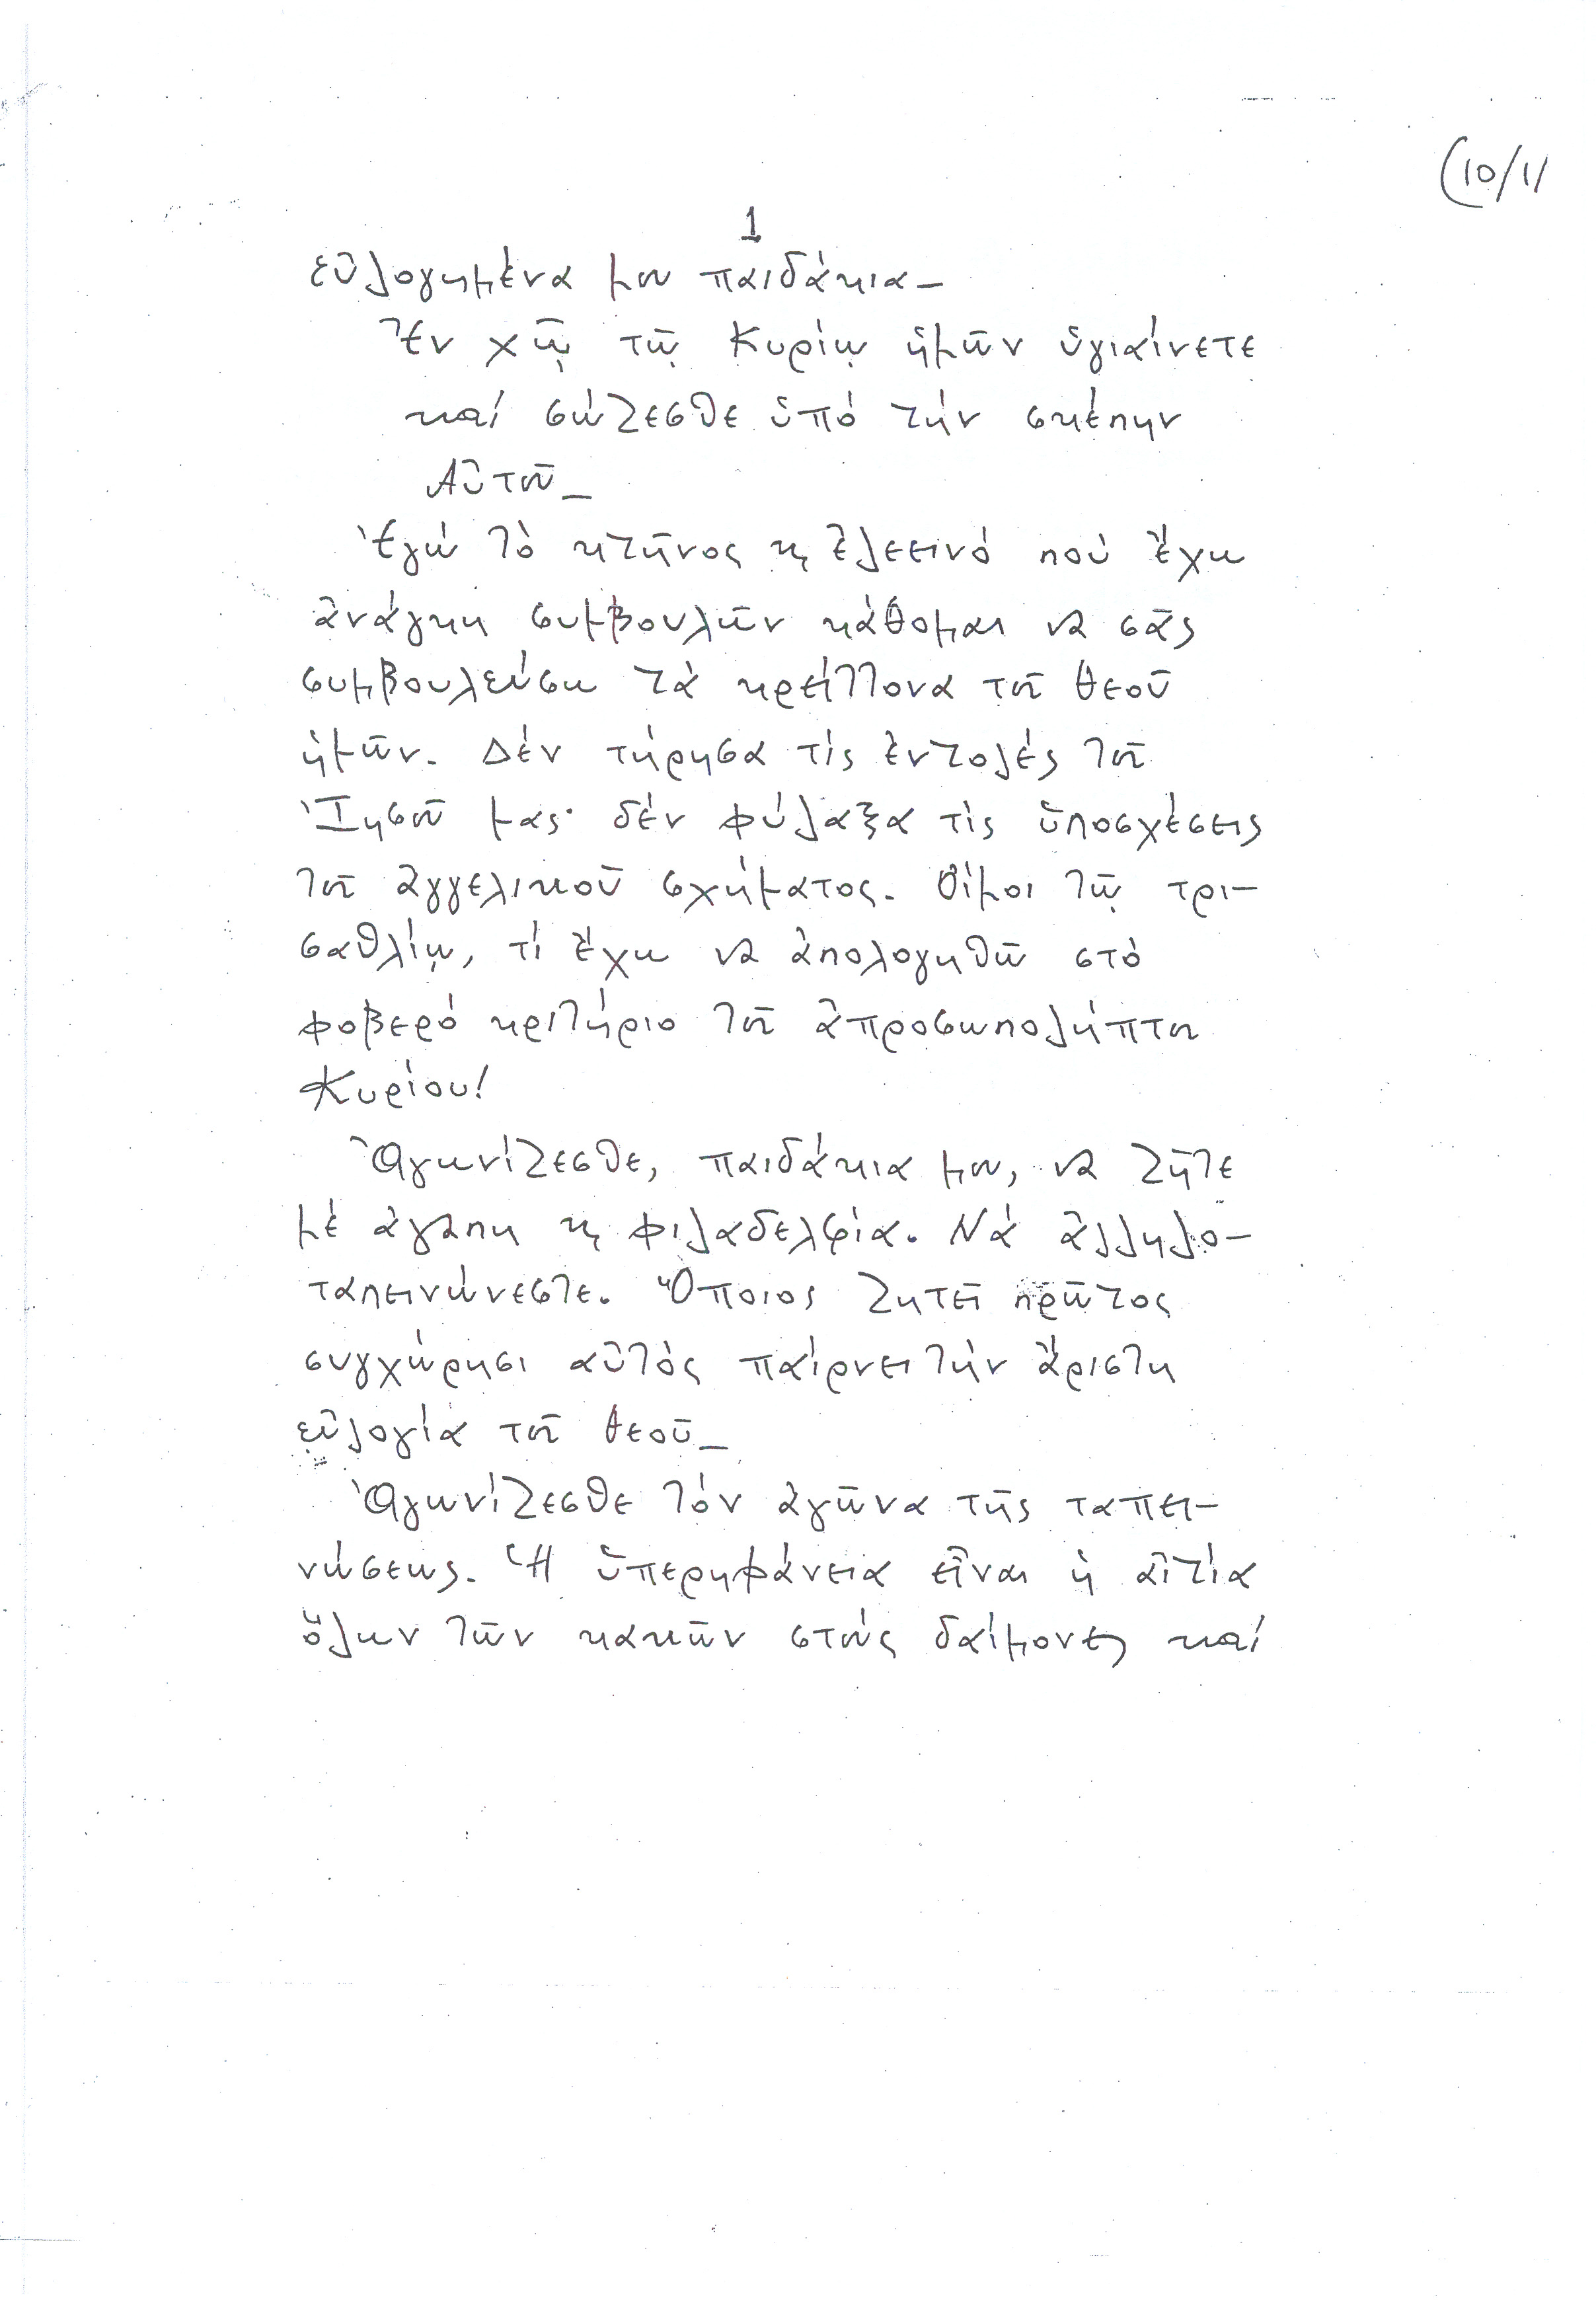 (10/1/
1
εὐλογημένα μου παιδάκια_
Ἐν Χῷ τῷ Κυρίῳ ἡμῶν ὑγιαίνετε
καί σώζεσθε ὑπό τήν σκέπην
Αὐτοῦ_
Ἐγώ τό κτῆνος ϗ ἐλεεινό πού ἔχω
ἀνάγκη συμβουλῶν κάθομαι νά σᾶς
συμβουλεύσω τά κρείττονα τοῦ Θεοῦ
ἡμῶν. Δέν τήρησα τίς ἐντολές τοῦ
Ἰησοῦ μας· δέν φύλαξα τίς ὑποσχέσεις
τοῦ ἀγγελικοῦ σχήματος. Οἴμοι τῷ τρι-
σαθλίῳ, τί ἔχω νά ἀπολογηθῶ στό
φοβερό κριτήριο τοῦ ἀπροσωπολήπτου
Κυρίου!
Ἀγωνίζεσθε, παιδάκια μου, νά ζῆτε
μέ ἀγάπη ϗ φιλαδελφία. Νά ἀλληλο-
ταπεινώνεστε. Ὅποιος ζητεῖ πρῶτος
συγχώρησι αὐτός παίρνει τήν ἄριστη
εὐλογία τοῦ Θεοῦ_
Ἀγωνίζεσθε τόν ἀγῶνα τῆς ταπει-
νώσεως. Ἡ ὑπερηφάνεια εἶναι ἡ αἰτία
ὅλων τῶν κακῶν στούς δαίμονες καί